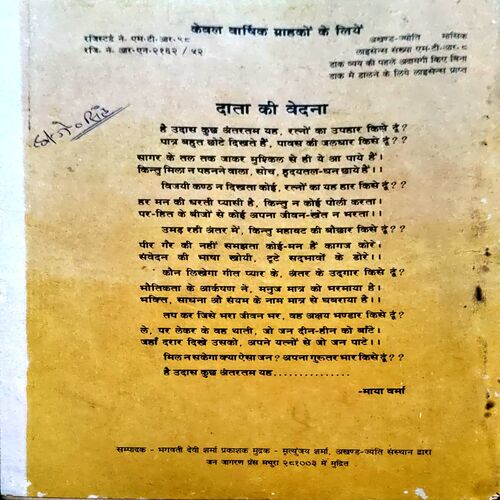 केवल वार्षिक ग्राहकों के लिये
रजिस्टर्ड नं. एम-टी-आर-५८
रजि. नं. आर-एन-२१६२ / ५२
अखण्ड-ज्योति मासिक
लाइसेन्स संख्या एम-टी-आर-८
डाक व्यय की पहले अदायगी किए बिना
डाक में डालने के लिये लाइसेन्स प्राप्त
दाता की वेदना
है उदास कुछ अंतरतम यह, रत्नों का उपहार किसे दूँ??
पात्र बहुत छोटे दिखते हैं, पावस की जलधार किसे दूँ??
सागर के तल तक जाकर मुश्किल से ही ये आ पाये हैं।
किन्तु मिला न पहनने वाला, सोच, हृदयतल-घन छाये हैं।।
विजयी कण्ठ न दिखता कोई, रत्नों का यह हार किसे दूँ??
हर मन की धरती प्यासी है, किन्तु न कोई पोली करता।
पर-हित के बीजों से कोई अपना जीवन-खेत न भरता।।
उमड़ रही अंतर में, किन्तु महावट की बौछार किसे दूँ??
पीर गैर की नहीं समझता कोई-मन हैं कागज कोरे।
संवेदन की भाषा खोयी, टूटे सद्भावों के डोरे।।
कौन लिखेगा गीत प्यार के, अंतर के उद्गार किसे दूँ?
भौतिकता के आकर्षण ने, मनुज मात्र को भरमाया है।
भक्ति, साधना औ संयम के नाम मात्र से घबराया है।।
तप कर जिसे भरा जीवन भर, वह अक्षय भण्डार किसे दूँ?
ले, पर लेकर के वह थाती, जो जन दीन-हीन को बाँटे।
जहाँ दरार दिखे उसको, अपने यत्नों से जो जन पाटे।।
मिल न सकेगा क्या ऐसा जन? अपना गुरूतर भार किसे दूँ??
है उदास कुछ अंतरतम यह...............
-माया वर्मा
सम्पादक - भगवती देवी शर्मा प्रकाशक मुद्रक - मृत्युंजय शर्मा, अखण्ड-ज्योति संस्थान द्वारा
जन जागरण प्रेस मथुरा २८१००३ में मुद्रित